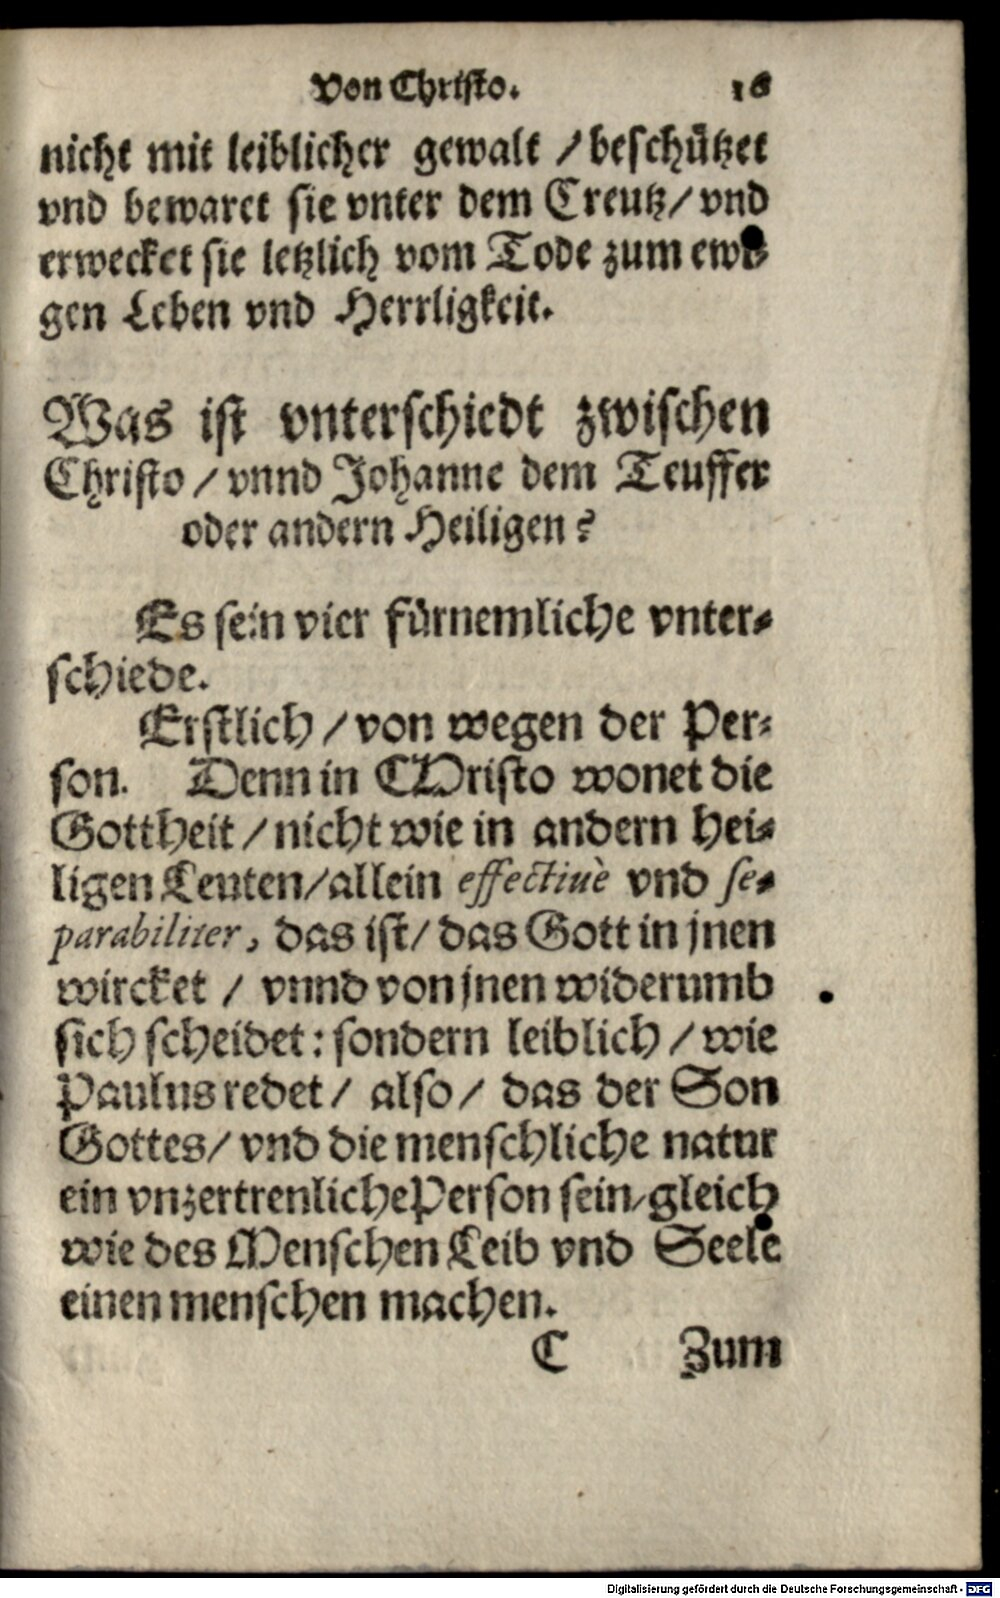 Von Christo. 16
nicht mit leiblicher gewalt / beschützet
vnd bewaret sie vnter dem Creutz / vnd
erwecket sie letzlich vom Tode zum ewi-
gen Leben vnd Herrligkeit.
Was ist vnterschiedt zwischen
Christo / vnnd Johanne dem Teuffer
oder andern Heiligen?
Es sein vier fürnemliche vnter-
schiede.
Erstlich / von wegen der Per-
son. Denn in CHristo wonet die
Gottheit / nicht wie in andern hei-
ligen Leuten / allein effectiuè vnd se-
parabiliter, das ist / das Gott in jnen
wircket / vnnd von jnen widerumb
sich scheidet: sondern leiblich / wie
Paulus redet / also / das der Son
Gottes / vnd die menschliche natur
ein vnzertrenliche Person sein / gleich
wie des Menschen Leib vnd Seele
einen menschen machen.
C Zum
Digitalisierung gefördert durch die Deutsche Forschungsgemeinschaft - DFG